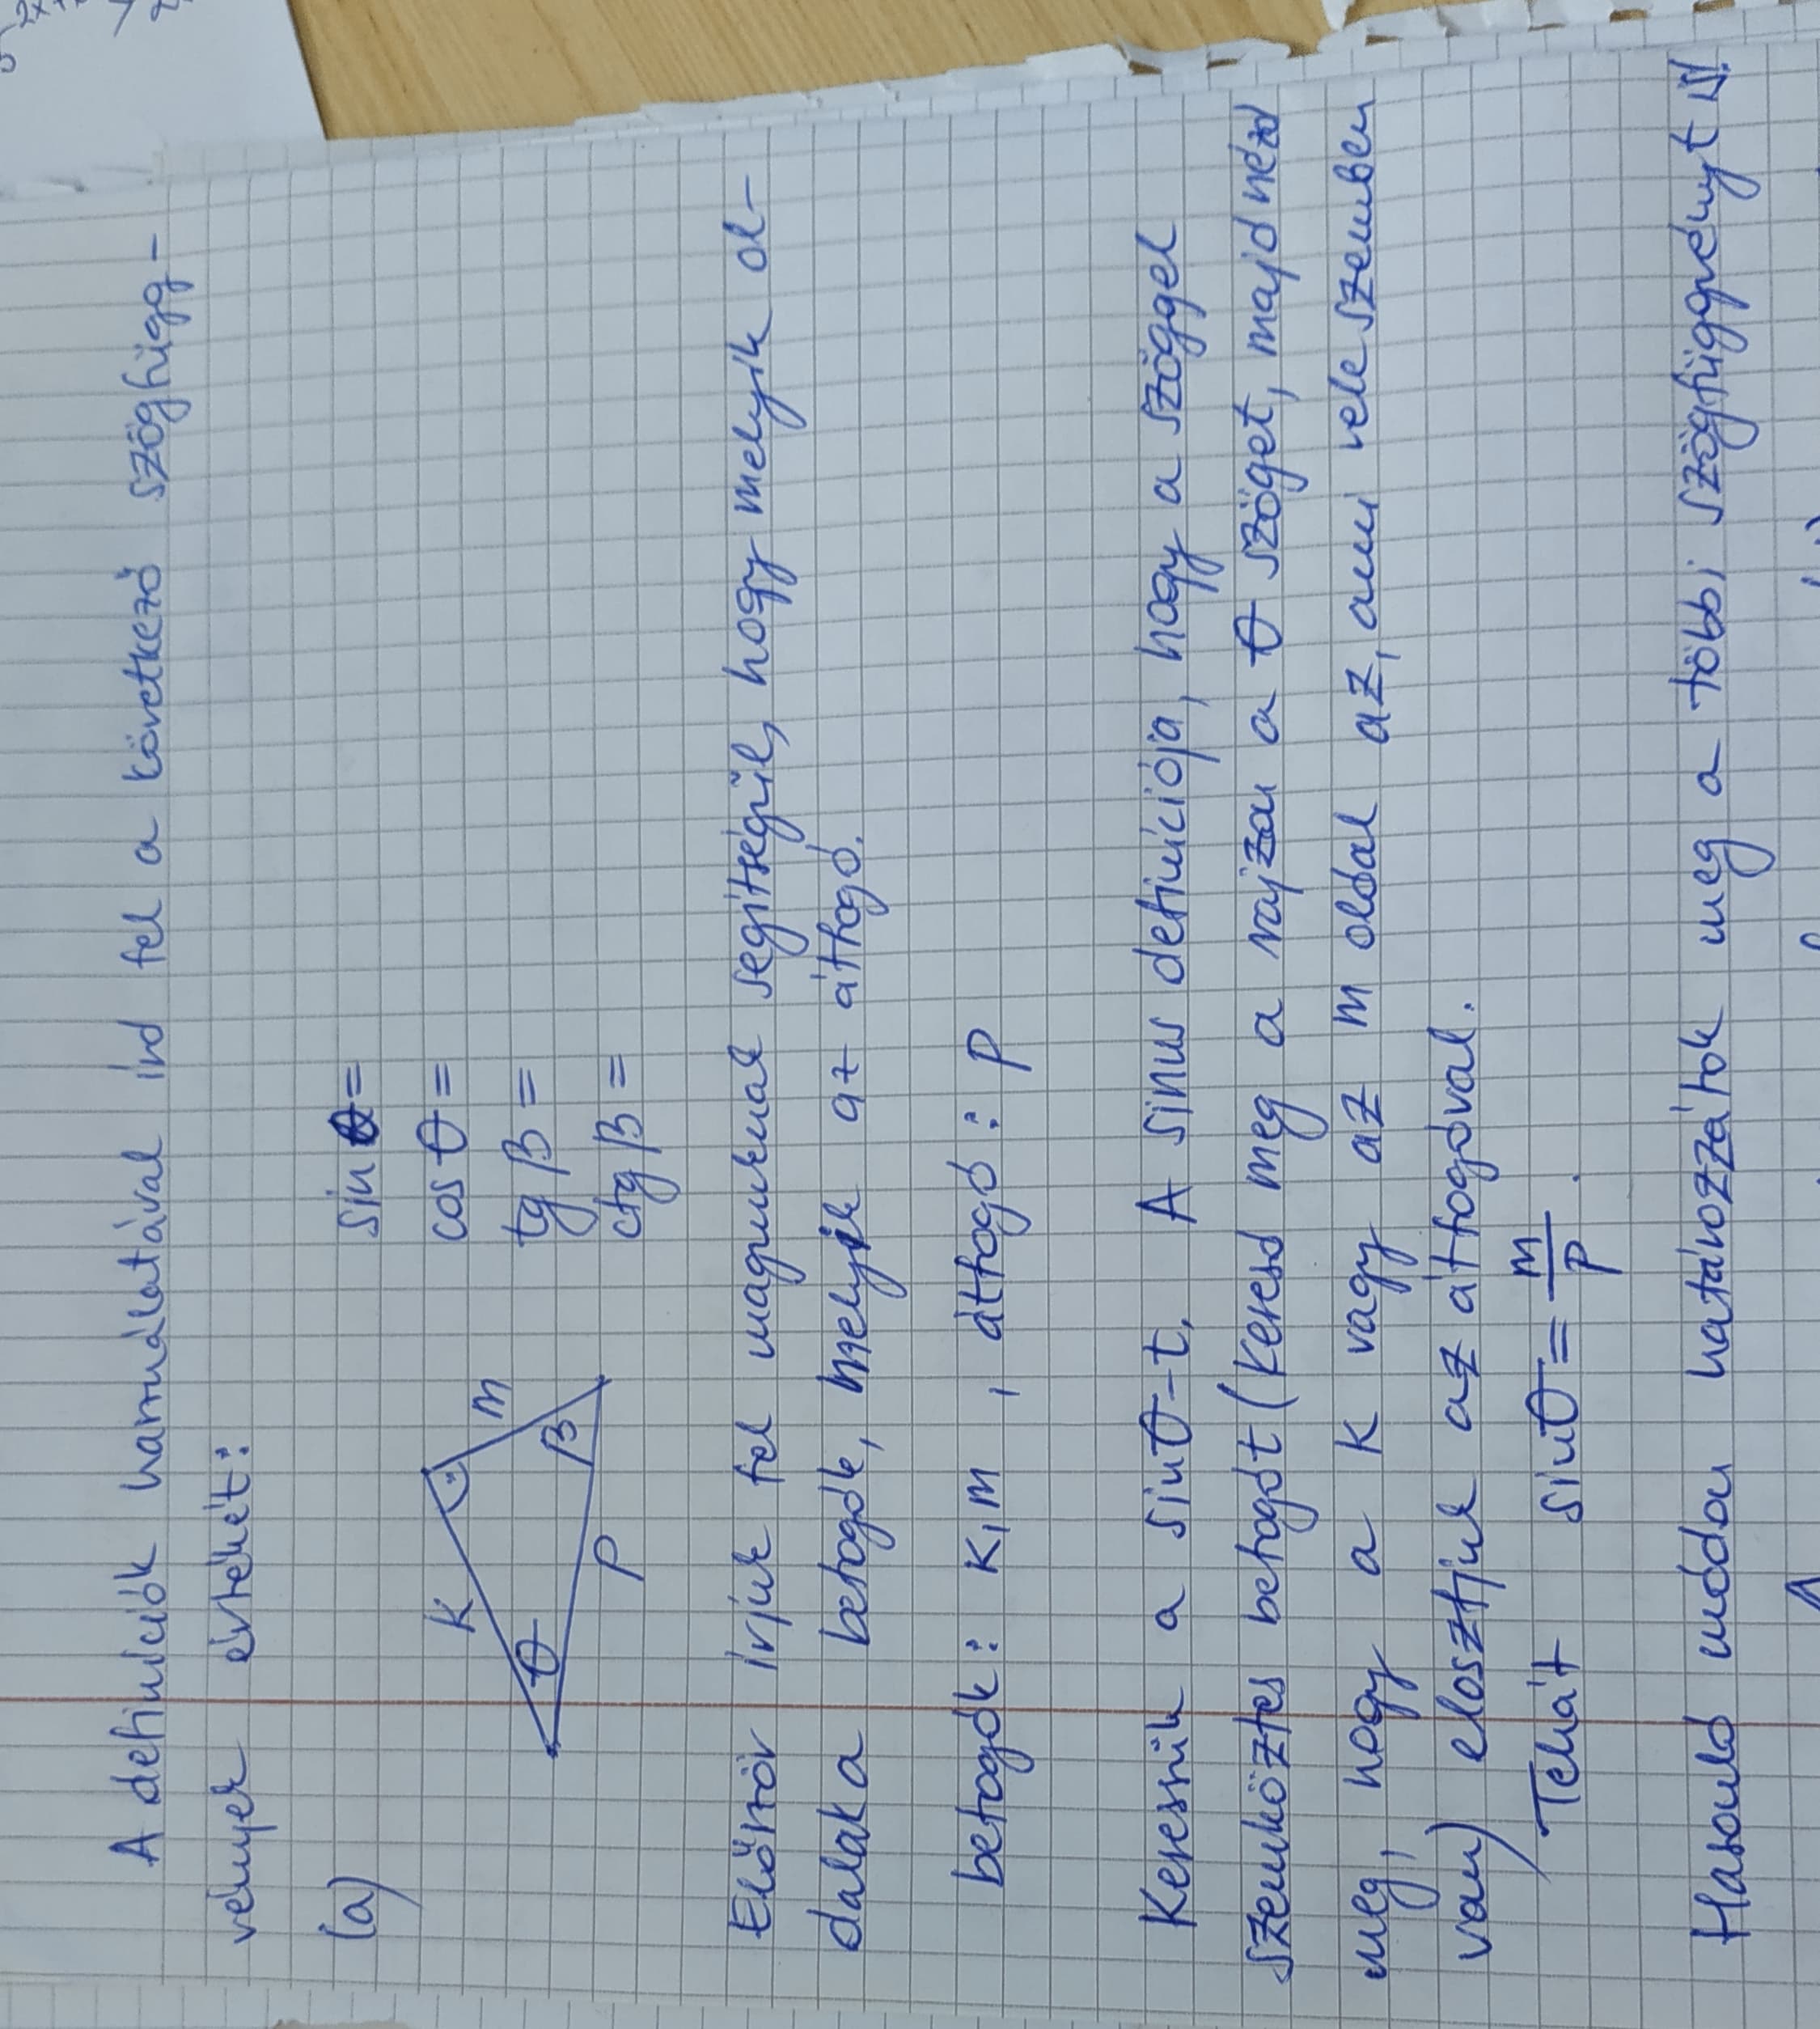 A definiciók hamnálatával írd fel a következő szögfügg-
vények értékét:
(a)
sin θ =
cos θ =
tg β =
ctg β =
k
m
θ
β
p
Először írjuk fel magunknak segítségül, hogy melyik ol-
dalak a befogók, melyik az átfogó.
befogók: k, m , átfogó: p
Keressük a sinθ-t. A sinus definíciója, hogy a szöggel
szemköztes befogót (keresd meg a rajzon a θ szöget, majd nézd
meg, hogy a k vagy az m oldal az, ami vele szemben
van) elosztjuk az átfogóval.
Tehát sinθ = m/p.
Hasonló módon határozzátok meg a többi szögfüggvényt is!